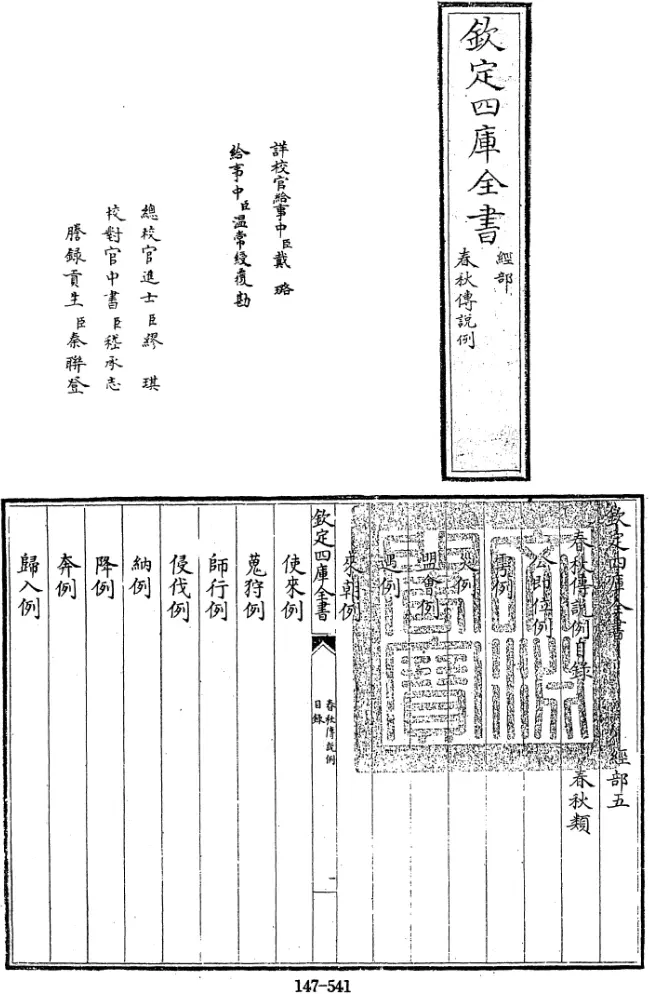 欽定四庫全書
經部
春秋傳説例
詳校官給事中臣戴璐
給事中臣温常綬覆勘
總校官進士臣繆琪
校對官中書臣嵇承志
謄録貢生臣秦聯登
欽定四庫全書 經部五
春秋傳説例目録 春秋類
公即位例
災例
盟會例
遇例
來朝例
欽定四庫全書
春秋傳説例
目録
一
使來例
蒐狩例
師行例
侵伐例
納例
降例
奔例
歸入例
147-541